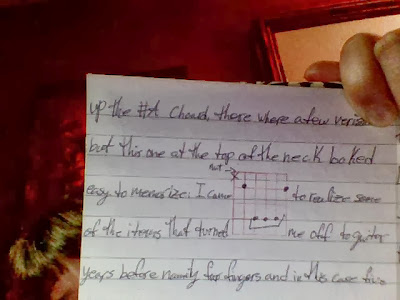 up the #A Chowd, there where a few versi
but this one at the top of the neck looked
nut
easy to memorize. I came to realize some
of the items that turned me off to guitar
years before namily for fingers and in this case five